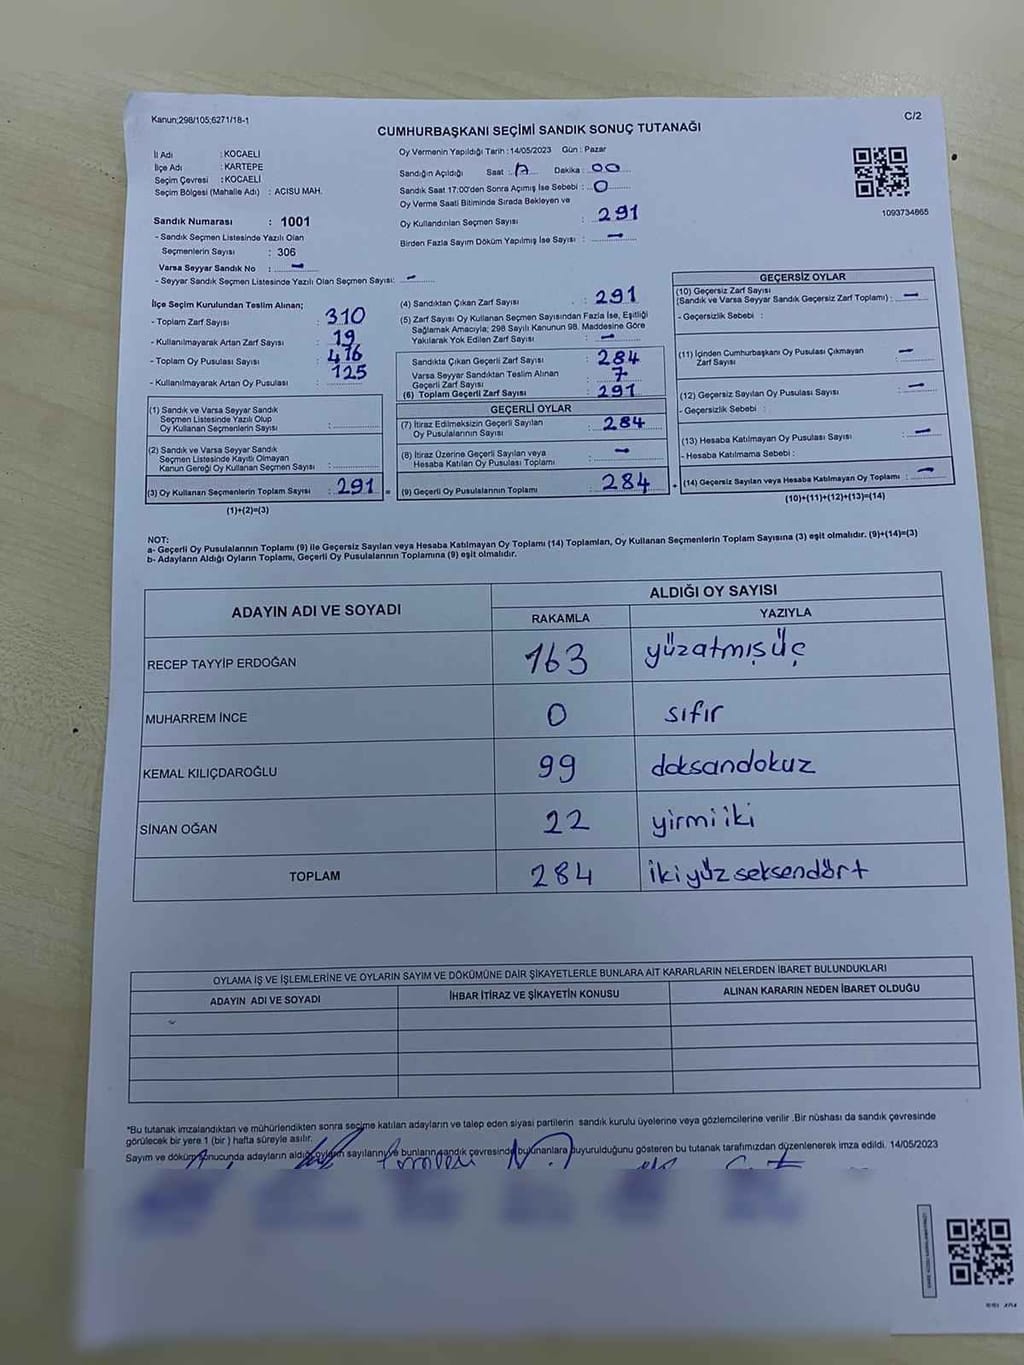 Kanun;298/105;6271/18-1
C/2
CUMHURBAŞKANI SEÇİMİ SANDIK SONUÇ TUTANAĞI
İl Adı : KOCAELİ
İlçe Adı : KARTEPE
Seçim Çevresi : KOCAELİ
Seçim Bölgesi (Mahalle Adı) : ACISU MAH.
Sandık Numarası : 1001
- Sandık Seçmen Listesinde Yazılı Olan
Seçmenlerin Sayısı : 306
Varsa Seyyar Sandık No : -
- Seyyar Sandık Seçmen Listesinde Yazılı Olan Seçmen Sayısı: -
Oy Vermenin Yapıldığı Tarih : 14/05/2023 Gün : Pazar
Sandığın Açıldığı Saat : 17 Dakika : 00
Sandık Saat 17:00'den Sonra Açımış İse Sebebi : 0
Oy Verme Saati Bitiminde Sırada Bekleyen ve
Oy Kullandırılan Seçmen Sayısı : 291
Birden Fazla Sayım Döküm Yapılmış İse Sayısı : -
1093734865
İlçe Seçim Kurulundan Teslim Alınan;
- Toplam Zarf Sayısı : 310
- Kullanılmayarak Artan Zarf Sayısı : 19
- Toplam Oy Pusulası Sayısı : 416
- Kullanılmayarak Artan Oy Pusulası : 125
(1) Sandık ve Varsa Seyyar Sandık
Seçmen Listesinde Yazılı Olup
Oy Kullanan Seçmenlerin Sayısı :
(2) Sandık ve Varsa Seyyar Sandık
Seçmen Listesinde Kayıtlı Olmayan
Kanun Gereği Oy Kullanan Seçmen Sayısı :
(3) Oy Kullanan Seçmenlerin Toplam Sayısı : 291 =
(1)+(2)=(3)
(4) Sandıktan Çıkan Zarf Sayısı : 291
(5) Zarf Sayısı Oy Kullanan Seçmen Sayısından Fazla İse, Eşitliği
Sağlamak Amacıyla; 298 Sayılı Kanunun 98. Maddesine Göre
Yakılarak Yok Edilen Zarf Sayısı : -
Sandıkta Çıkan Geçerli Zarf Sayısı : 284
Varsa Seyyar Sandıktan Teslim Alınan
Geçerli Zarf Sayısı : 7
(6) Toplam Geçerli Zarf Sayısı : 291
GEÇERLİ OYLAR
(7) İtiraz Edilmeksizin Geçerli Sayılan
Oy Pusulalarının Sayısı : 284
(8) İtiraz Üzerine Geçerli Sayılan veya
Hesaba Katılan Oy Pusulası Toplamı : -
(9) Geçerli Oy Pusulalarının Toplamı : 284 +
GEÇERSİZ OYLAR
(10) Geçersiz Zarf Sayısı
(Sandık ve Varsa Seyyar Sandık Geçersiz Zarf Toplamı) : -
- Geçersizlik Sebebi :
(11) İçinden Cumhurbaşkanı Oy Pusulası Çıkmayan
Zarf Sayısı : -
(12) Geçersiz Sayılan Oy Pusulası Sayısı : -
- Geçersizlik Sebebi :
(13) Hesaba Katılmayan Oy Pusulası Sayısı : -
- Hesaba Katılmama Sebebi :
(14) Geçersiz Sayılan veya Hesaba Katılmayan Oy Toplamı : -
(10)+(11)+(12)+(13)=(14)
NOT:
a- Geçerli Oy Pusulalarının Toplamı (9) ile Geçersiz Sayılan veya Hesaba Katılmayan Oy Toplamı (14) Toplamları, Oy Kullanan Seçmenlerin Toplam Sayısına (3) eşit olmalıdır. (9)+(14)=(3)
b- Adayların Aldığı Oyların Toplamı, Geçerli Oy Pusulalarının Toplamına (9) eşit olmalıdır.
ADAYIN ADI VE SOYADI
ALDIĞI OY SAYISI
RAKAMLA YAZIYLA
RECEP TAYYİP ERDOĞAN 163 yüzatmışüç
MUHARREM İNCE 0 sıfır
KEMAL KILIÇDAROĞLU 99 doksandokuz
SİNAN OĞAN 22 yirmiiki
TOPLAM 284 ikiyüzseksendört
OYLAMA İŞ VE İŞLEMLERİNE VE OYLARIN SAYIM VE DÖKÜMÜNE DAİR ŞİKAYETLERLE BUNLARA AİT KARARLARIN NELERDEN İBARET BULUNDUKLARI
ADAYIN ADI VE SOYADI İHBAR İTİRAZ VE ŞİKAYETİN KONUSU ALINAN KARARIN NEDEN İBARET OLDUĞU
*Bu tutanak imzalandıktan ve mühürlendikten sonra seçime katılan adayların ve talep eden siyasi partilerin sandık kurulu üyelerine veya gözlemcilerine verilir .Bir nüshası da sandık çevresinde
görülecek bir yere 1 (bir ) hafta süreyle asılır.
Sayım ve döküm sonucunda adayların aldığı oyların sayılarını ve bunların sandık çevresinde bulunanlara duyurulduğunu gösteren bu tutanak tarafımızdan düzenlenerek imza edildi. 14/05/2023